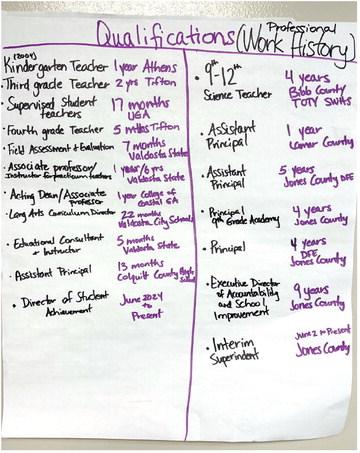 Qualifications (Professional
Work History)
(2004)
Kindergarten Teacher 1 year Athens
• Third grade Teacher 2 yrs Tifton
• Supervised Student 17 months
teachers UGA
• Fourth grade Teacher 5 mths Tifton
• Field Assessment & Evaluation 7 months
Valdosta State
• Associate professor/ 1 year/6 yrs
Instructor Valdosta State
• Acting Dean/Associate 1 year College of
professor Coastal GA
• Lang Arts Curriculum Director 22 months
Valdosta City Schools
• Educational Consultant 5 months
+ Instructor Valdosta State
• Assistant Pricipal 13 months
Colquitt County High
• Director of Student June 2024
Achievement to
Present
• 9th-12th 4 years
Science Teacher Bibb County
TOTY SWHS
• Assistant 1 year
Principal Lamar County
• Assistant 5 years
Principal Jones County
• Principal 4 years
9th Grade Academy Jones County
• Principal 4 years
Jones County
• Executive Director 9 years
of Accountability Jones County
and School
Improvement
• Interim June 2 to Present
Superindent Jones County